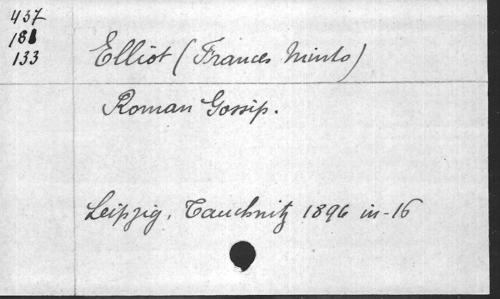 437
181
133
Elliot (Frances Minto)
Roman Gossip.
Leipzig, Tauchnitz 1896 in-16